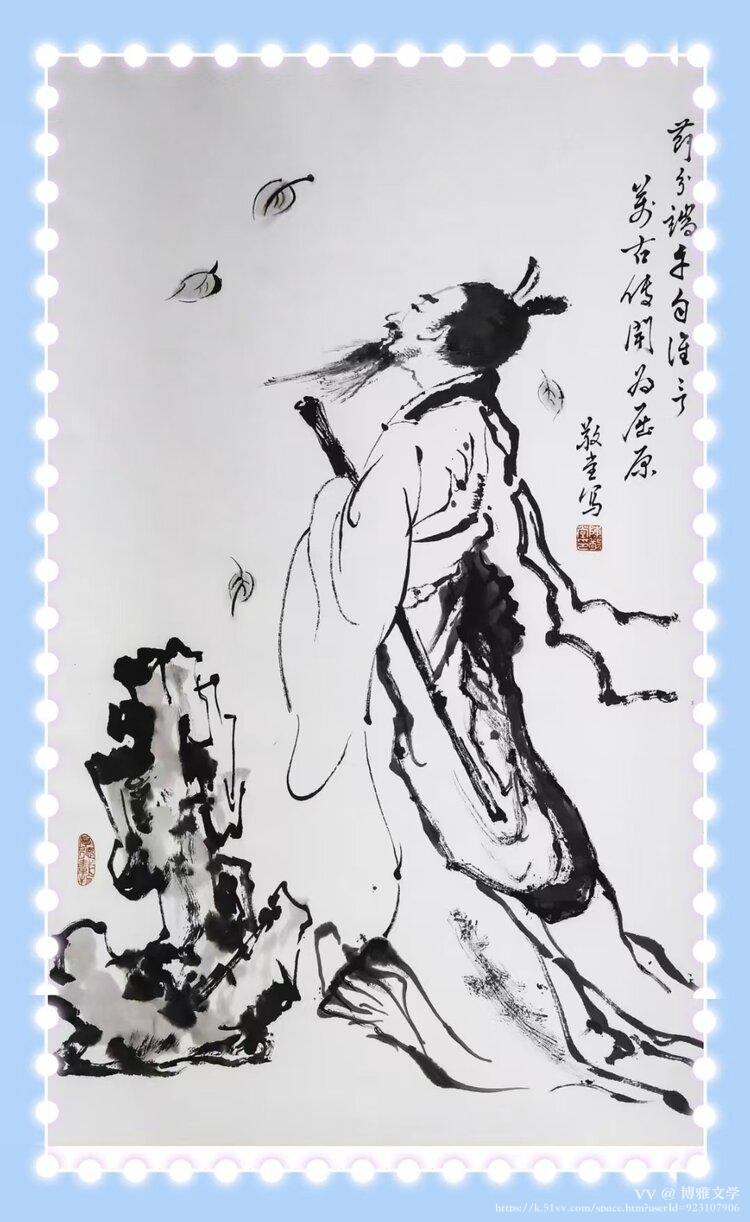 節分端午自谁言
萬古传聞为屈原
敬堂写
VV @ 博雅文学
https://k.51vv.com/space.htm?userId=923107906